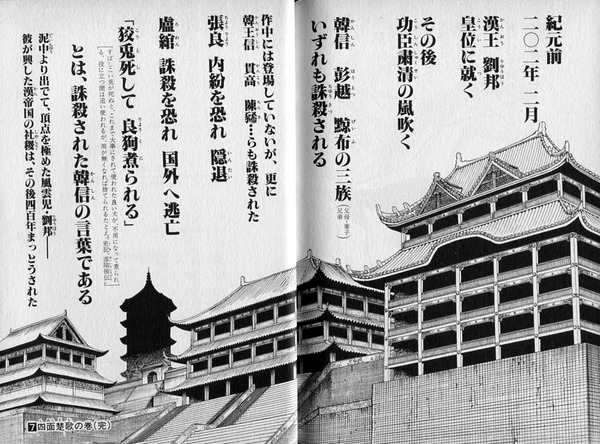 紀元前
二〇二年 二月
漢王 劉邦
皇位に就く
その後
功臣粛清の嵐吹く
韓信 彭越 黥布の三族(父母・妻子・兄弟)
いずれも誅殺される
作中には登場していないが、更に
韓王信 貫高 陳豨…らも誅殺された
張良 内紛を恐れ 隠退
盧綰 誅殺を恐れ 国外へ逃亡
「狡兎死して 良狗煮られる」
すばしこい兎が死ぬと、これまで大事にされて使われた良い犬が、不用になって煮られ
る。役に立つ間は追い使われるが、用が無くなれば捨てられるたとえ。史記・淮陰侯伝
とは、誅殺された韓信の言葉である
泥中より出でて、頂点を極めた風雲児・劉邦――
彼が興した漢帝国の社稷は、その後四百年まっとうされた
7四面楚歌の巻(完)